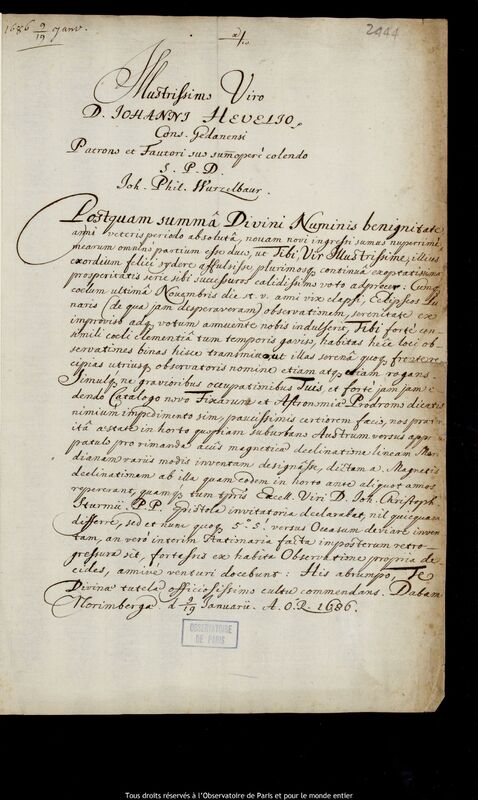 1686 9/19 Janv.
2444
Illustrissimo Viro
D. IOHANNI HEVELIO,
Cons. Gedanensi
Patrono et Fautori suo summopere colendo
S. P. D.
Joh. Phil. Wurzelbaur.
Postquam summâ Divini Numinis benignitate
anni veteris periodo absolutâ, novam novi ingressi sumus nuperrimè,
mearum omninò partium esse duco, ut Tibi, Vir Illustrissime, illius
exordium felici sydere affulsisse plurimosq continuâ exoptatissimæ
prosperitatis serie sibi successuros calidissimo voto adprecer. Cumq
coelum ultimâ Novembris die st. v. anni vix elapsi, Eclipseos Lu-
naris (de qua jam desperaveram) observationem, serenitate ex
improviso adq votum annuente nobis indulserit, Tibi fortè con-
simili coeli clementiâ tum temporis gaviso, habitas hîc loci ob-
servationes binas hisce transmitto, ut illas serenâ quoq fronte re-
cipias utriusq observatoris nomine etiam atq etiam rogans.
Simulq ne gravioribus occupationibus Tuis, et fortè jam jam e-
dendo Catalogo novo Fixarum et Astronomiæ Prodromo dicatis
nimium impedimento sim, paucissimis certiorem facio, nos præter-
itâ æstate in horto quopiam suburbano Austrum versus
patulo pro rimanda acûs magneticæ declinatione lineam Mer-
dianam variis modis inventam designasse, dictam a. Magnetis
declinationem ab illa quam eodem in horto ante aliquot annos
repererant, quamq tum tpris Excell. Viri D. Joh. Christoph.
Sturmii. P. P. epistola invitatoria declarabat, nil quicquam
differre, sed et nunc quoq 5°. 5'. versus Occasum deviare inven-
tam, an verò interim stationaria facta imposterum retro-
gressura sit, fortessis ex habita Observatione propria de-
cides, annive venturi docebunt: His abrumpo, Te
Divinæ tutelæ officiosissimo cultu commendans. Dabam
Norimbergæ d. 9/19 Januarii. A. O. R. 1686.
OBSERVATOIRE
DE PARIS
Tous droits réservés à l'Observatoire de Paris et pour le monde entier